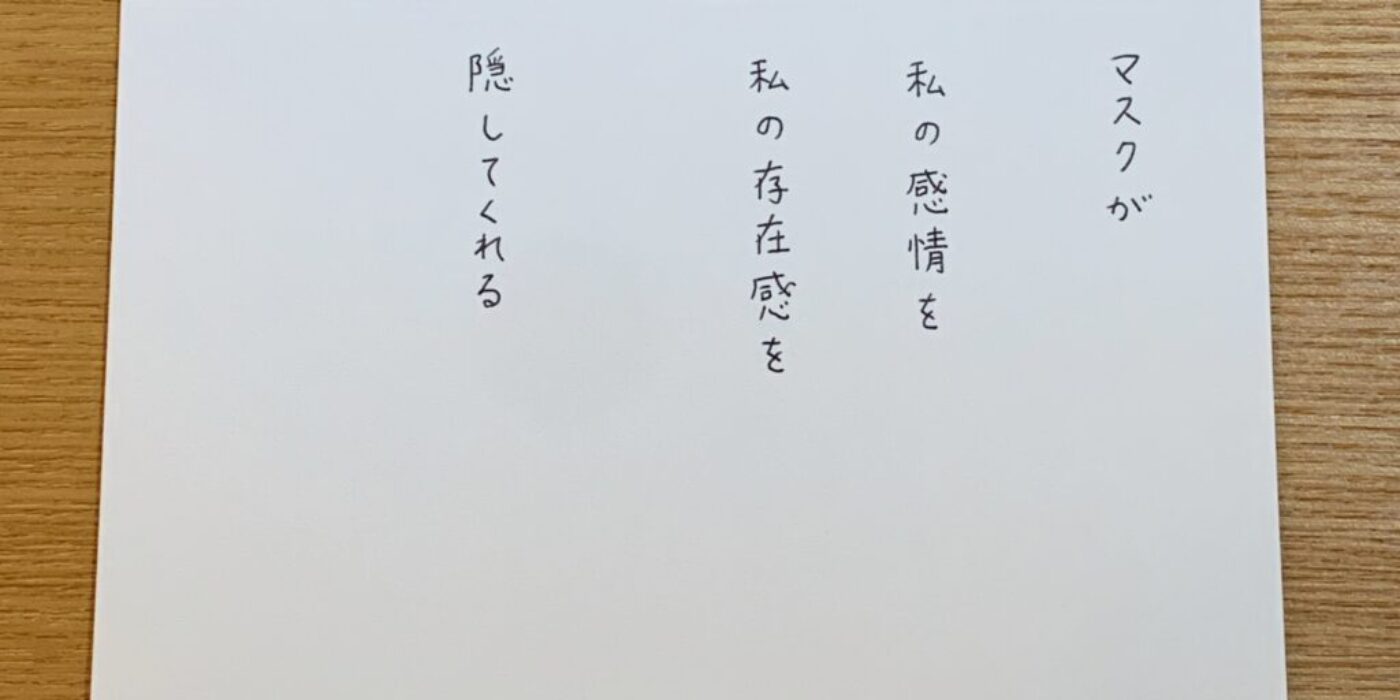 マスクが
私の感情を
私の存在感を
隠してくれる